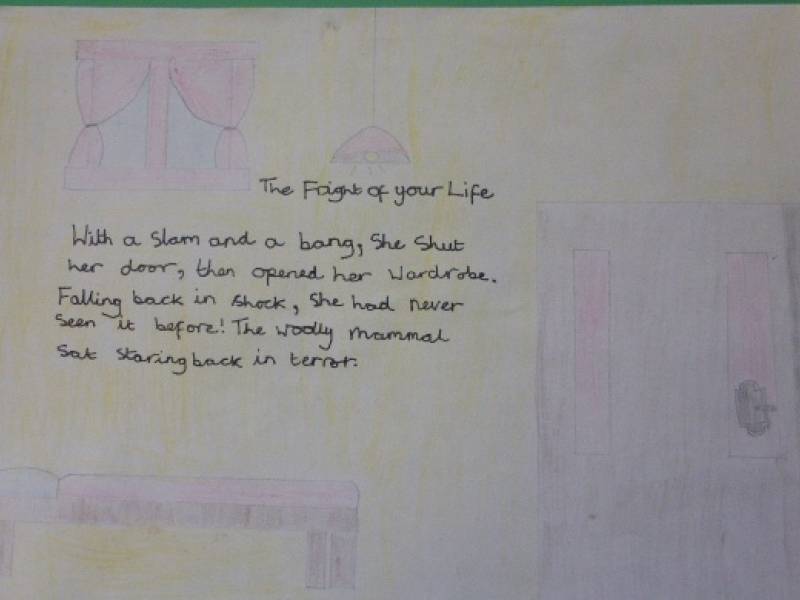 The Fright of your Life
With a slam and a bang, She Shut
her door, then opened her Wardrobe.
Falling back in shock, She had never
seen it before! The woolly mammal
Sat staring back in terror.